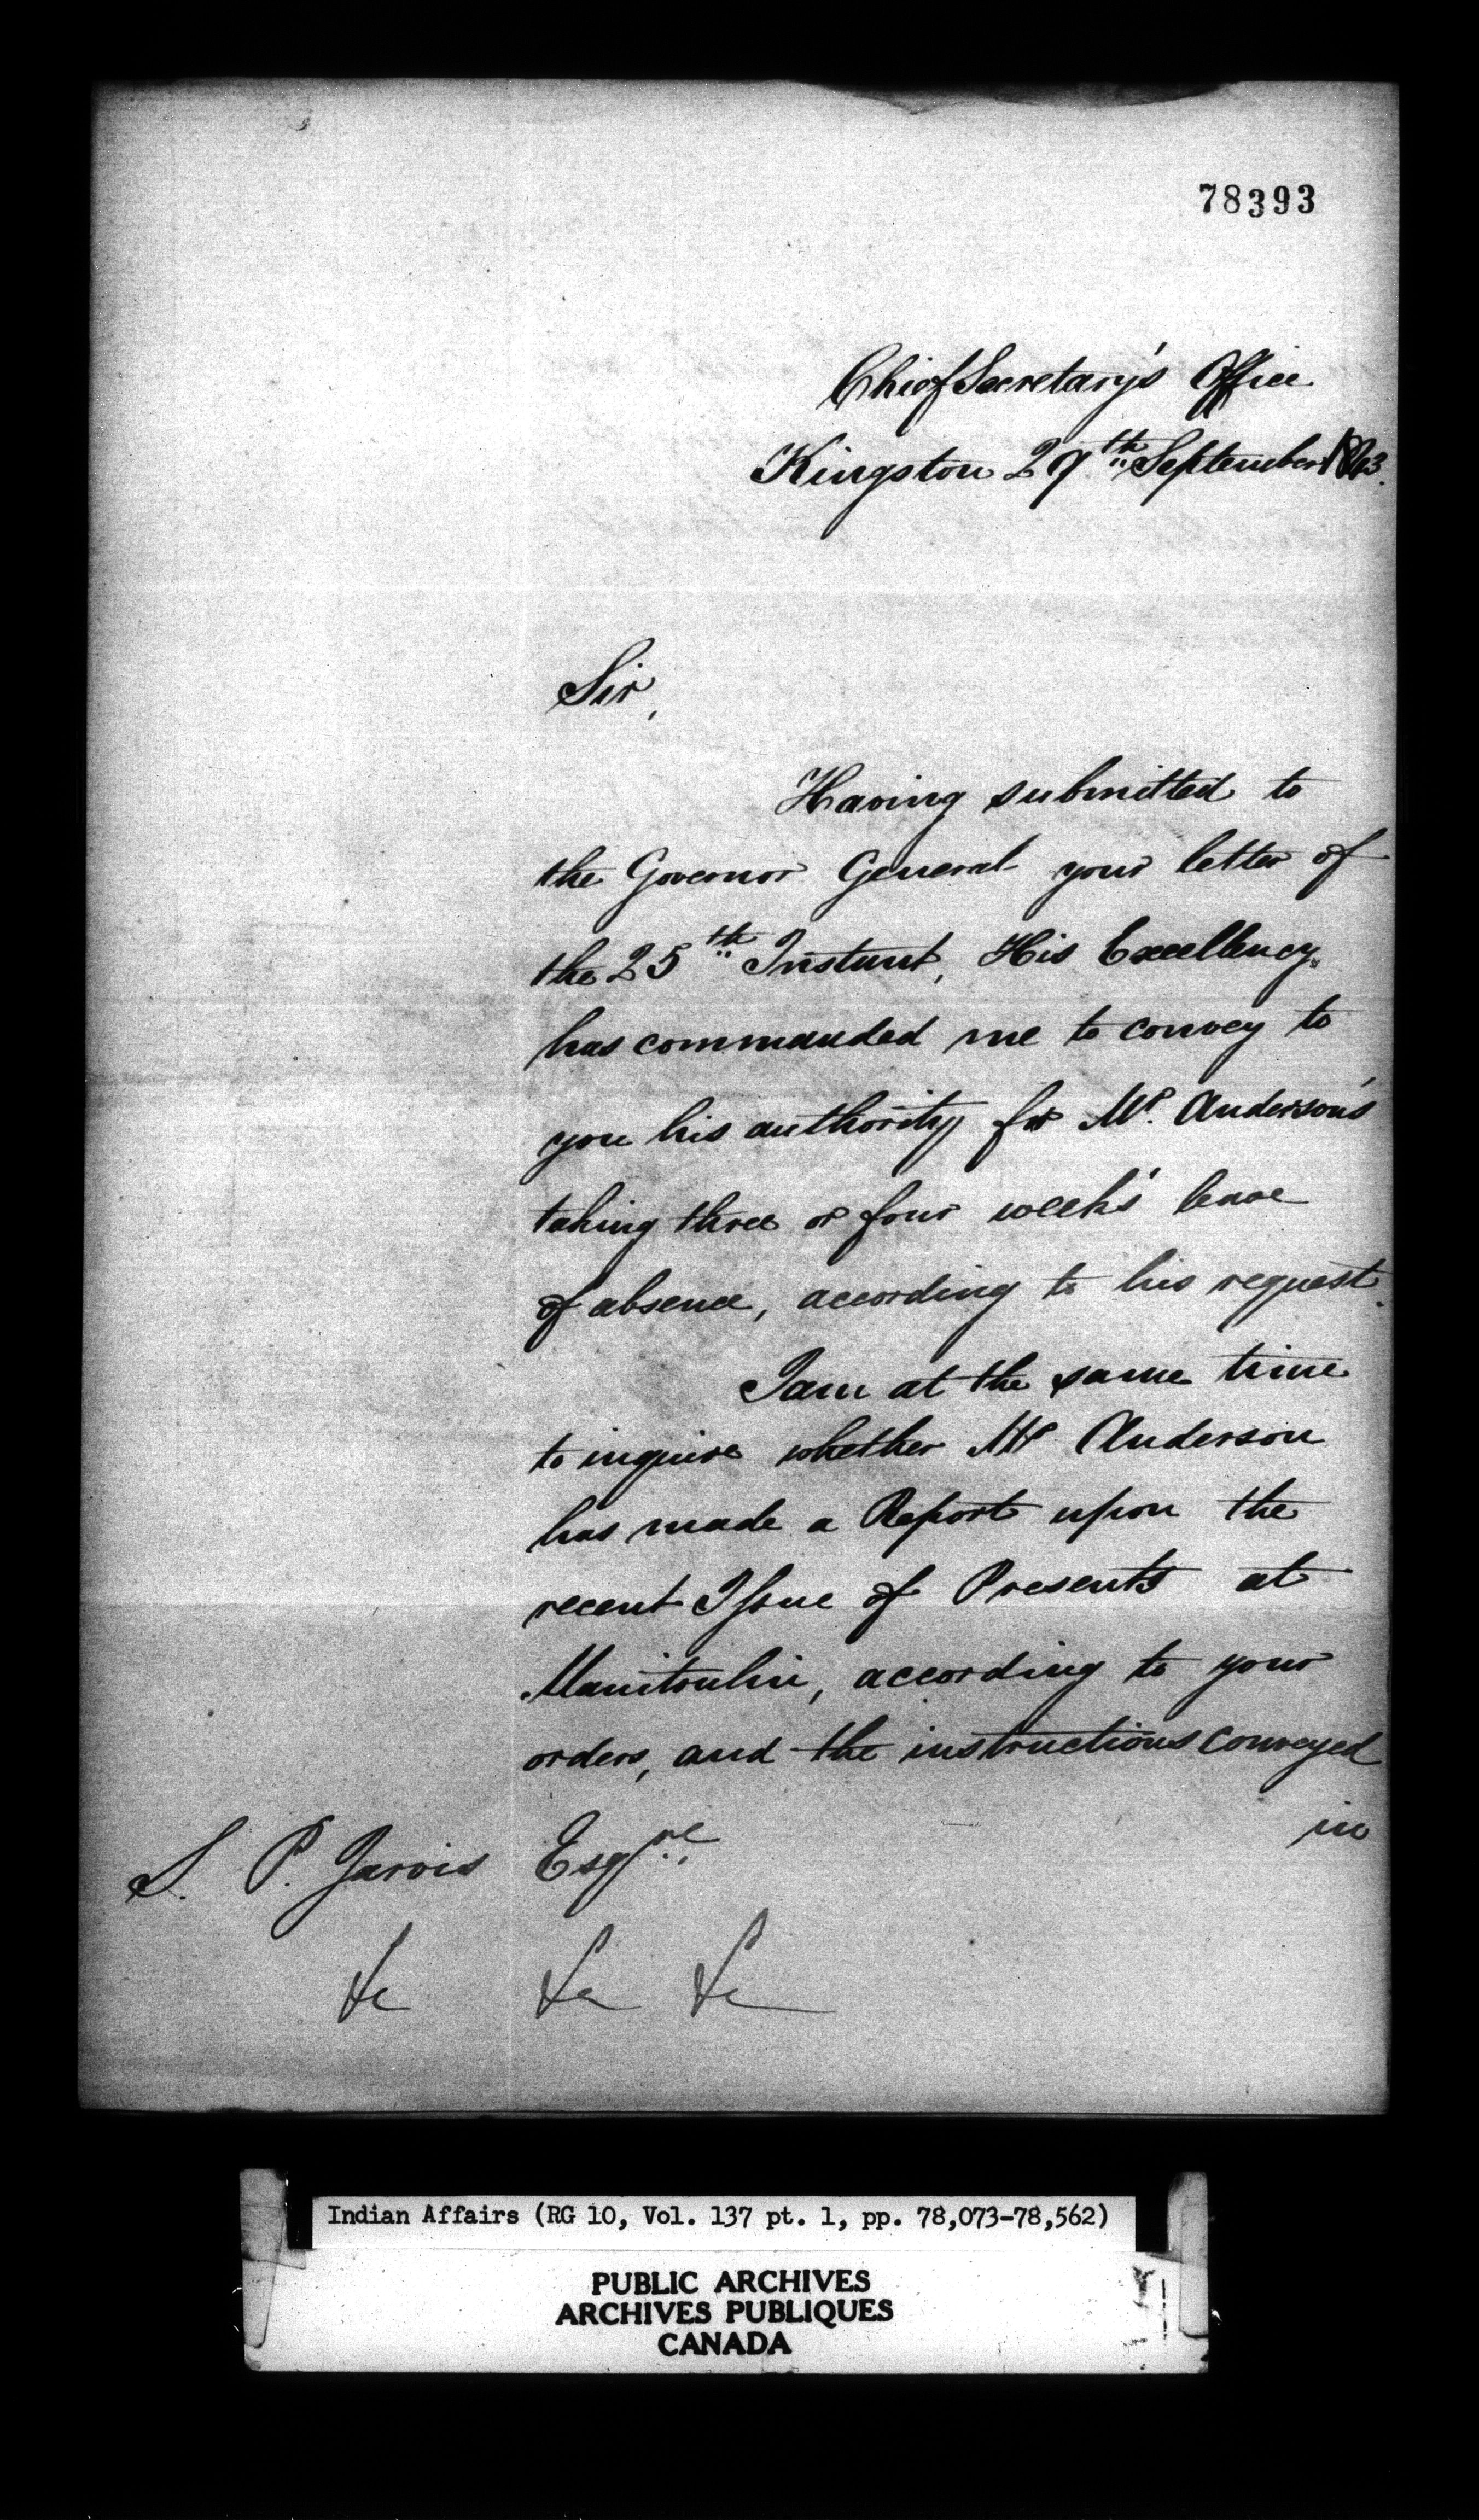 78393
Chief Secretary's Office
Kingston 29th September 1843.
Sir,
Having submitted to
the Governor General your letter of
the 25th Instant, His Excellency
has commanded me to convey to
you his authority for Mr. Anderson's
taking three or four weeks' leave
of absence, according to his request.
I am at the same time
to inquire whether Mr Anderson
has made a Report upon the
recent Issue of Presents at
Manitoulin, according to your
orders, and the instructions conveyed
in
S. P. Jarvis Esqre
&c &c &c
Indian Affairs (RG 10, Vol. 137 pt. 1, pp. 78,073-78,562)
PUBLIC ARCHIVES
ARCHIVES PUBLIQUES
CANADA